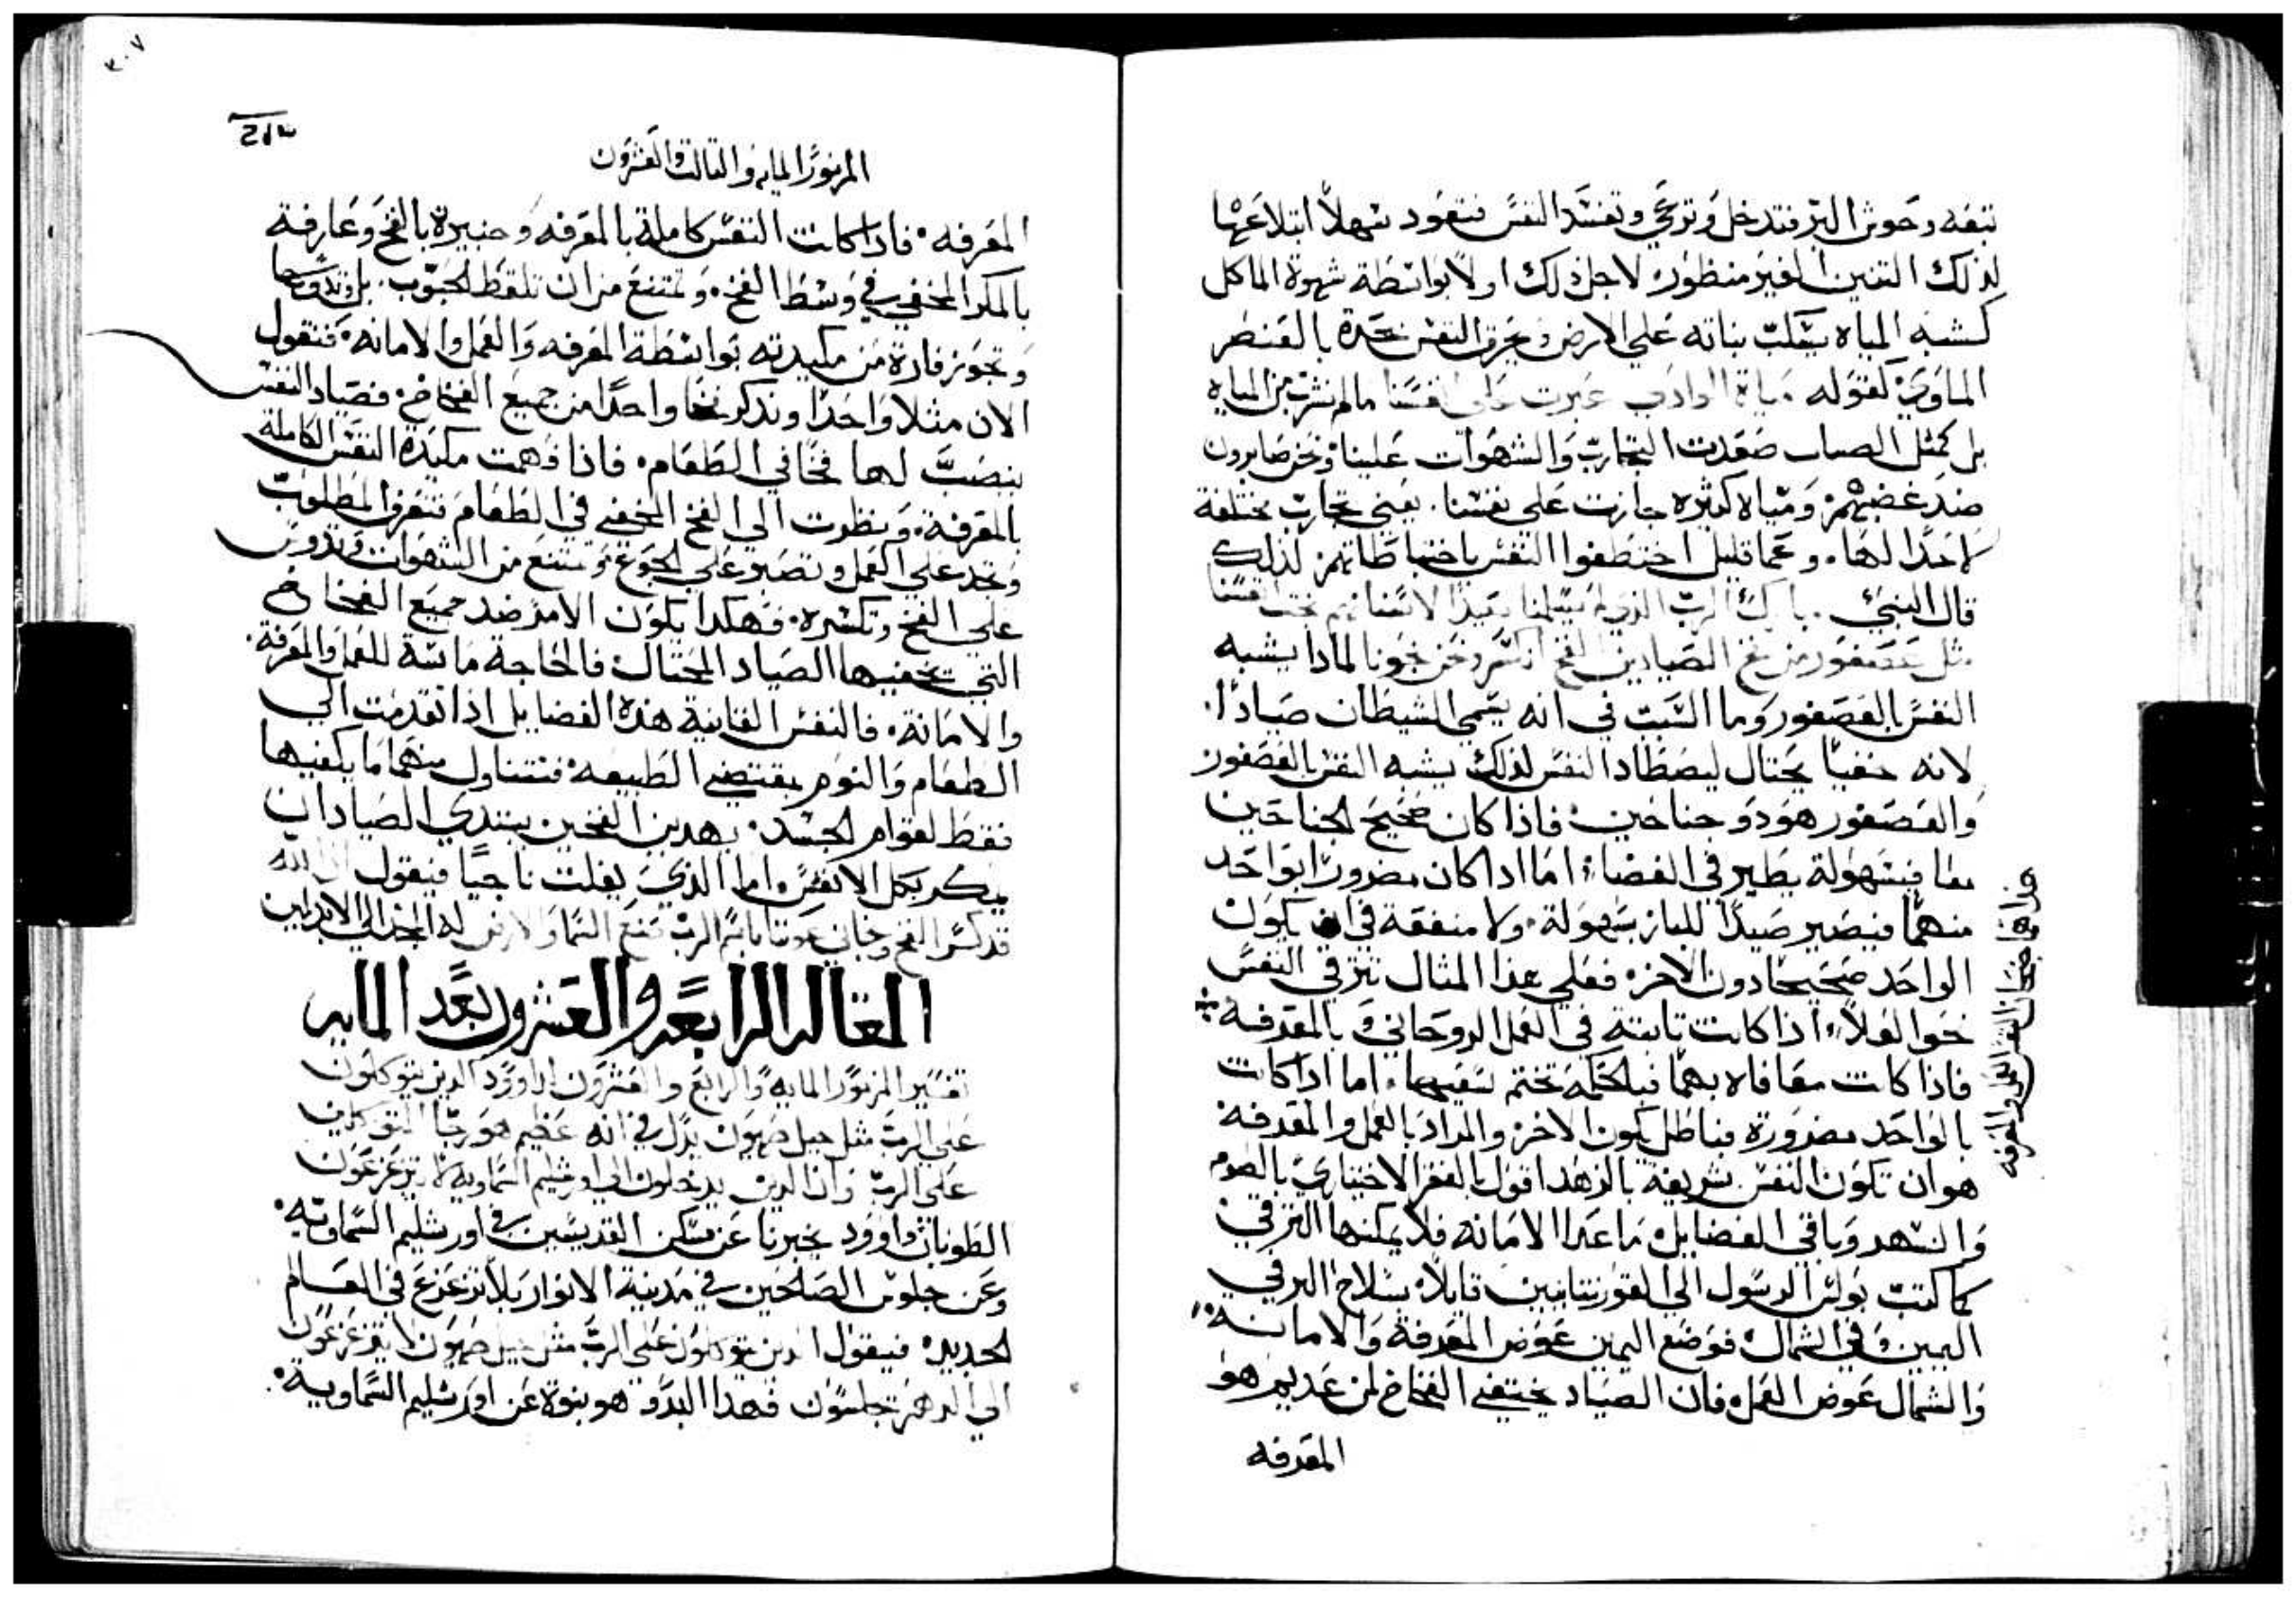 تتبعه وحوش البر فتدخل وترعى وتفسد النفس فتعود سهلاً ابتلاعها
لذلك التنين الغير منظور لاجل ذلك اولاً بواسطة شهوة الماكل
كشبه المياه بنباته على الارض النفس بالقنطر
الماوي كقوله مياة الوادي عبرت على انفسنا مالم نشرب من المياه
بل كمثل الصباب صعدت التجارب والشهوات علينا ونحن صابرون
ضد غضبهم ومياه كثيره جازت على نفسنا. يعني تجارب مختلفة
لاحدّا لها. وعما قليل اختطفوا النفس باختباطاتهم لذلك
قال النبي. بارك الرب الذي لم يسلمنا صيدًا لاسنانهم نجت انفسنا
مثل عصفور من فخ الصيادين الفخ انكسر ونحن نجونا لماذا يشبه
النفس بالعصفور وما السبب في انه يسمى الشيطان صيادًا.
لانه خفيًا يحتال ليصطاد النفس لذلك يشبه النفس بالعصفور
والعصفور هو ذو جناحين. فاذا كان صحيح الجناحين
معا فبسهولة يطير في الفضاء. اما اذا كان مضرورًا بواحد
منهما فيصير صيدًا للباز بسهولة. ولا منفعة في ان يكون
الواحد صحيحًا دون الاخر. فعلى هذا المثال ترتقي النفس
نحو العلاء. اذا كانت ثابتة في العمل الروحاني وبالمعرفة
فاذا كانت معافاه بهما فبالحكمة تختم سعيها. اما اذا كانت
بالواحد مضرورة فباطل يكون الاخر. والمراد بالعمل والمعرفة
هو ان تكون النفس شريفة بالزهد اقول بالفقر الاختياري بالصوم
والسهر وباقي الفضايل. ما عدا الامانه فلا يمكنها الترقي
كما كتب بولس الرسول الى القورنتانيين قايلاً. بسلاح البر في
اليمين وفي الشمال. فوضع اليمين عوض المعرفة والامانة
والشمال عوض العمل. فان الصياد يختفي الفخاخ لمن عديم هو
المعرفه
جناحات النفس العمل والمعرفه
٣٠٧
المزمور المايه والثالث والعشرون
المعرفه. فاذا كانت النفس كاملة بالمعرفه وخبيرة بالفخ وعارفة
بالمكر المخفي في وسط الفخ. وتمتنع من ان تلتقط الحبوب. بل وتدوسها
وتجوز فارة من مكيدته بواسطة المعرفه والعمل والامانه. فنقول
الان مثلاً واحدًا ونذكر فخا واحدًا من جميع الفخاخ. فصياد النفس
ينصب لها فخًا في الطعام. فاذا فهمت مكيدة النفس الكاملة
بالمعرفة. ونظرت الى الفخ المخفي في الطعام فتعرف المطلوب
وتجد على العمل وتصبر على الجوع وتمتنع من الشهوات وتدوس
على الفخ وتكسره. فهكذا يكون الامر ضد جميع الفخاخ
التي يخفيها الصياد المحتال. فالحاجة ماسة للعمل والمعرفة.
والامانة. فالنفس القانية هذه الفضايل اذا تقدمت الى
الطعام والنوم بمقتضى الطبيعه. فتتناول منهما ما يكفيها
فقط لقوام الجسد. بهدين الفخين يبتدي الصياد ان
يمكر بكل الانفس. واما الذي يفلت ناجيًا فيقول
قد كسر الفخ ونجانا عوننا باسم الرب صنع السما والارض له المجد الى الابد امين
المقالة الرابعة والعشرون بعد المايه
تفسير المزمور المايه والرابع والعشرون لداوود الذين يتوكلون
على الرب مثل جبل صهيون يدل في انه عظيم هو رجا المتوكلين
على الرب وان الذين يدخلون الى اورشليم السماويه لا يتزعزعون
الطوباني داوود يخبرنا عن مسكن القديسين في اورشليم السماويه.
وعن جلوس الصالحين في مدينة الانوار بلا تزعزع في العالم
الجديد. فيقول الذين يتوكلون على الرب مثل جبل صهيون لا يتزعزعون
الى الدهر جلسون فهذا البدو هو نبوة عن اورشليم السماويه.